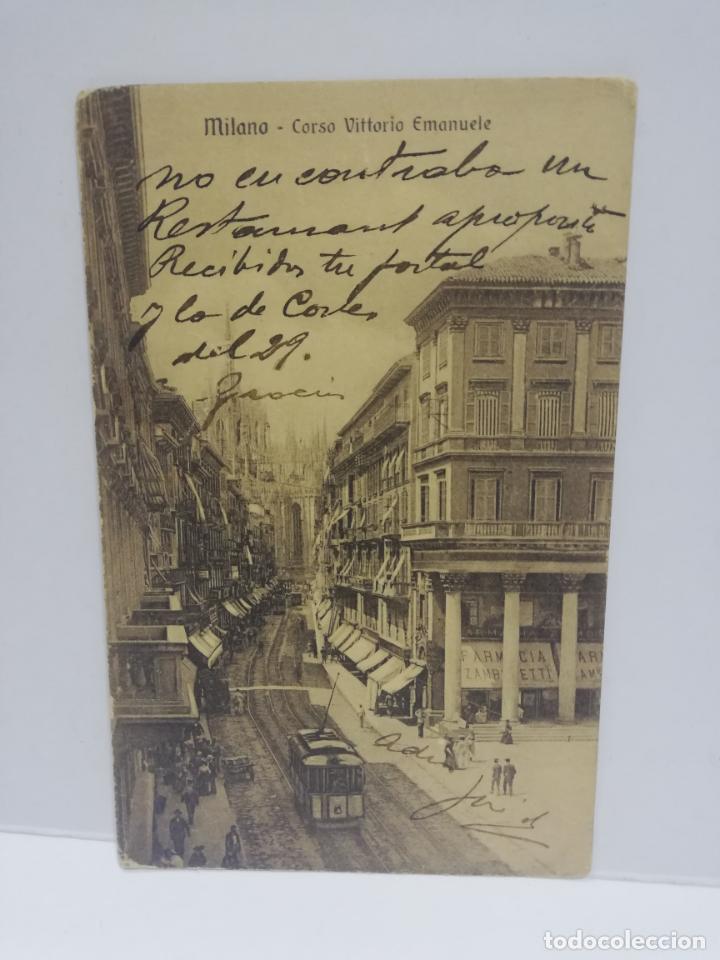 Milano - Corso Vittorio Emanuele
no encontraba un
Restaurant aproposito
Recibidos tu postal
y la de
del 29.
Gracias
FARMACIA
ZAMBELETTI
FAR
ZAMB
todocoleccion
todocoleccion.net